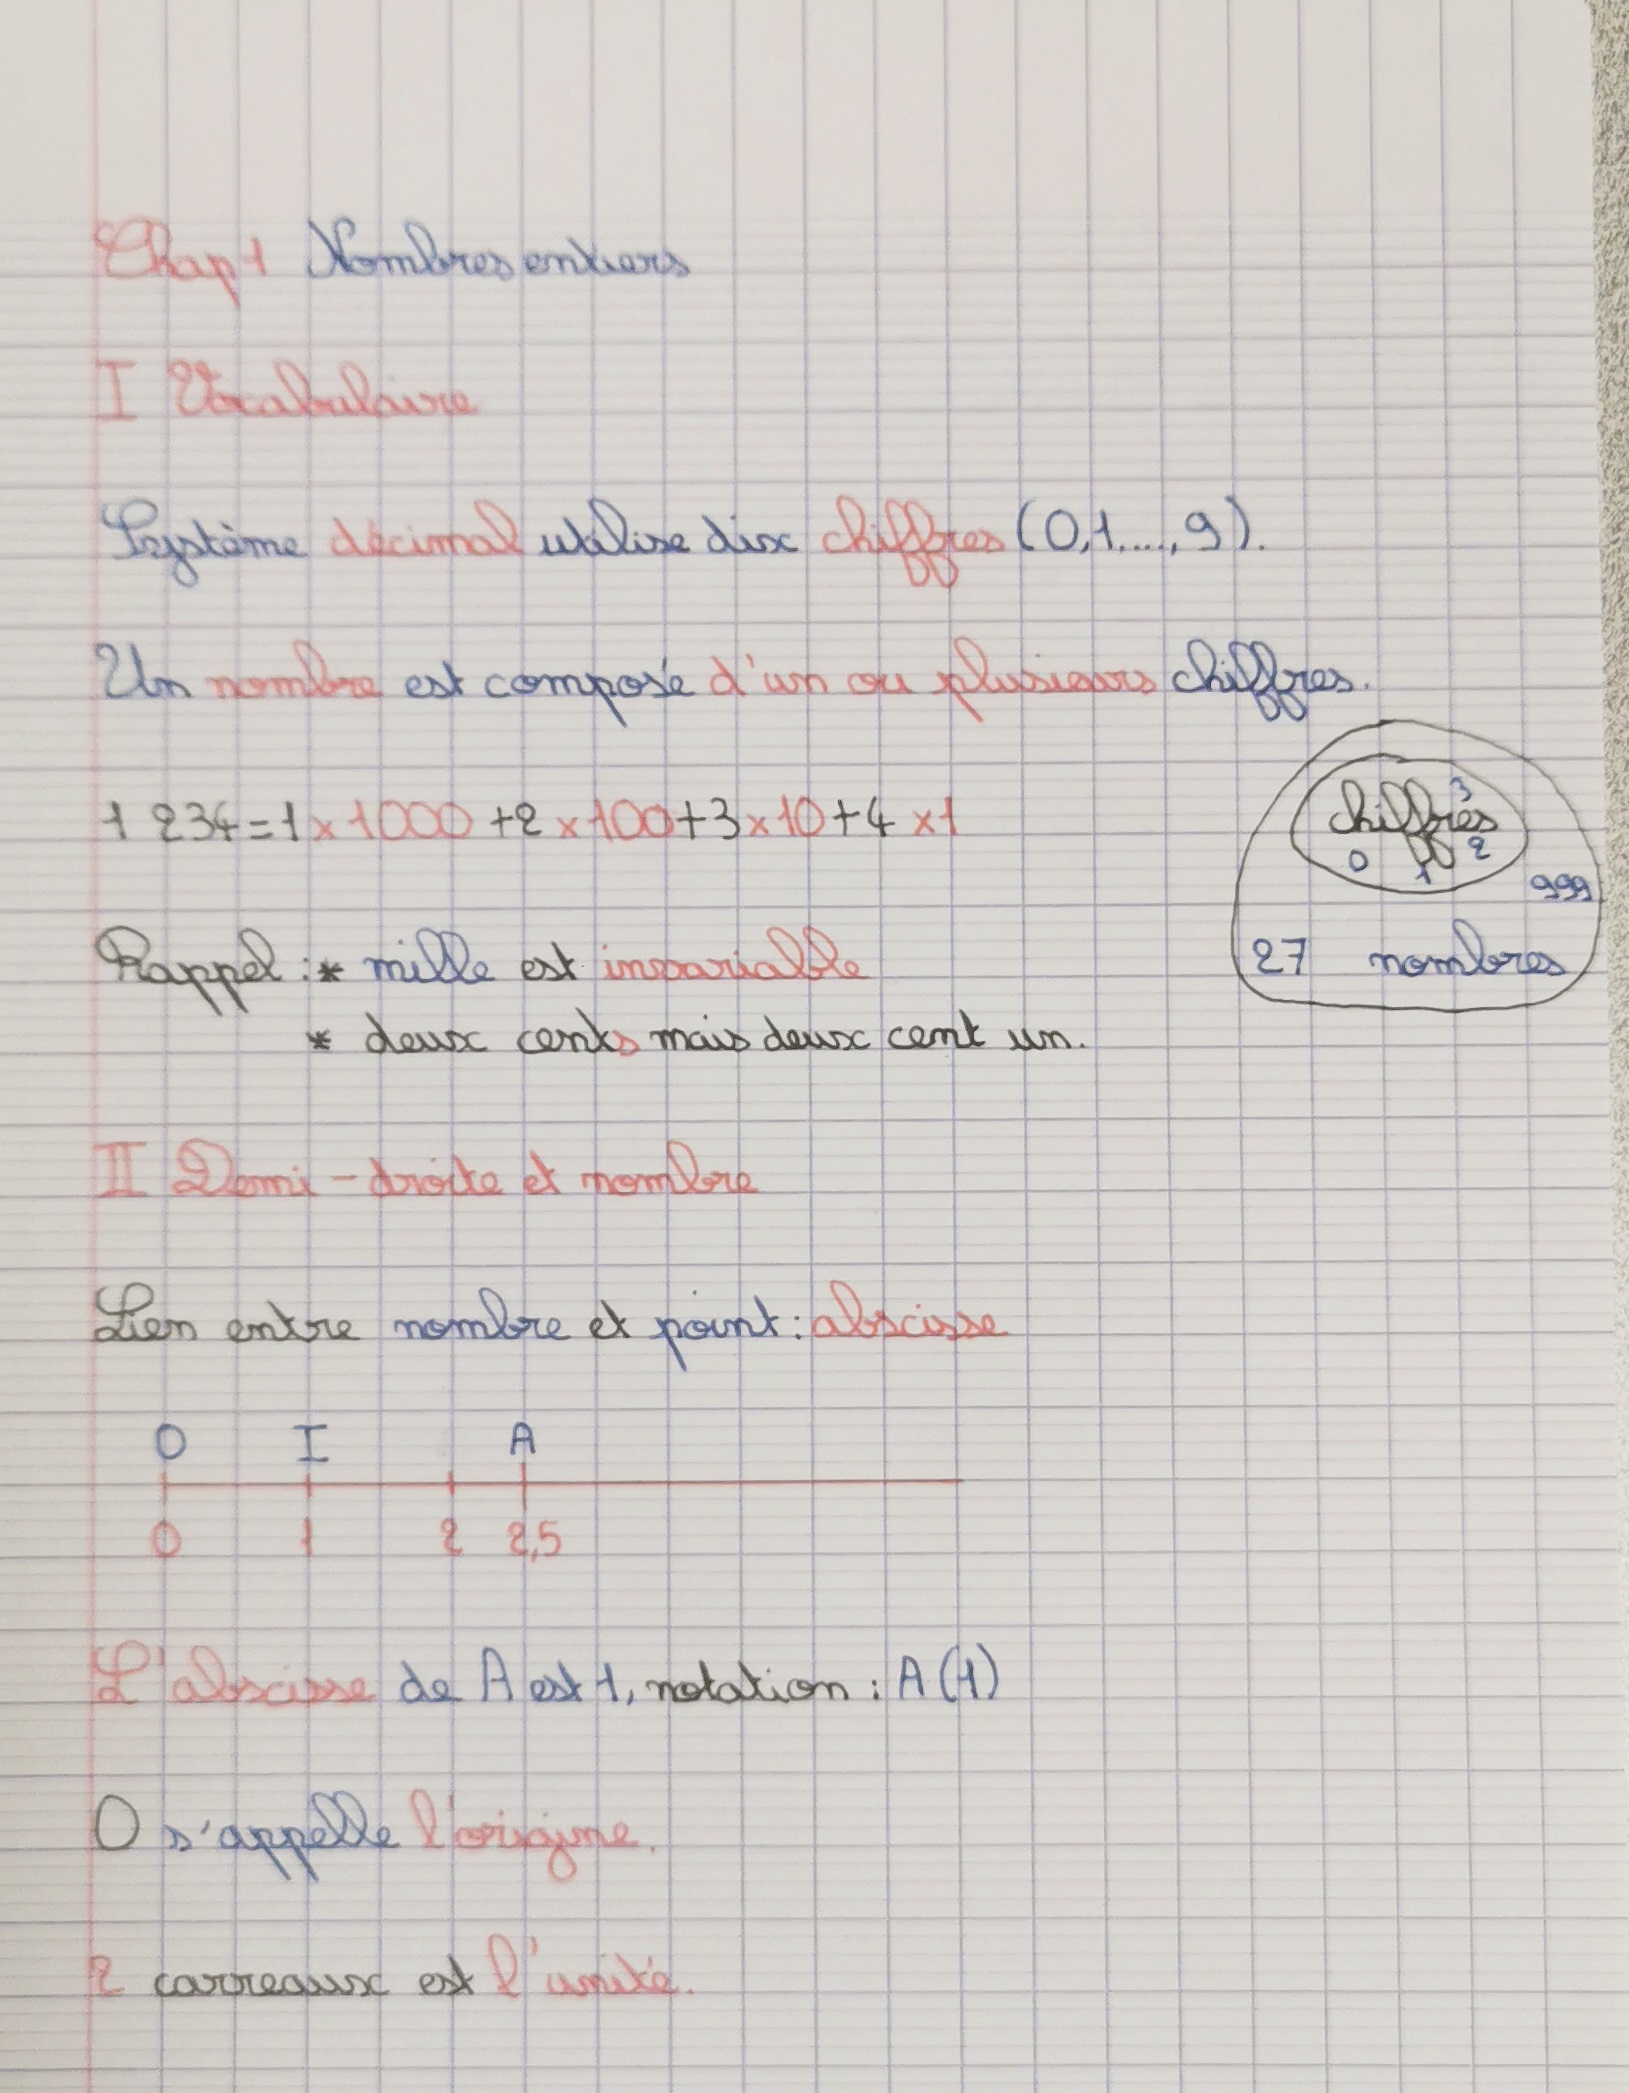 Chap 1 Nombres entiers
I Vocabulaire
Système décimal utilise dix chiffres (0,1...., 9).
Un nombre est composé d'un ou plusieurs chiffres.
1 234 = 1 x 1000 + 2 x 100 + 3 x 10 + 4 x 1
3
chiffres
0 1 2
999
27 nombres
Rappel : * mille est invariable
* deux cents mais deux cent un.
II Demi-droite et nombre
Lien entre nombre et point : abscisse
O I A
0 1 2 2,5
L'abscisse de A est 1, notation : A(1)
O s'appelle l'origine.
2 carreaux est l'unité.